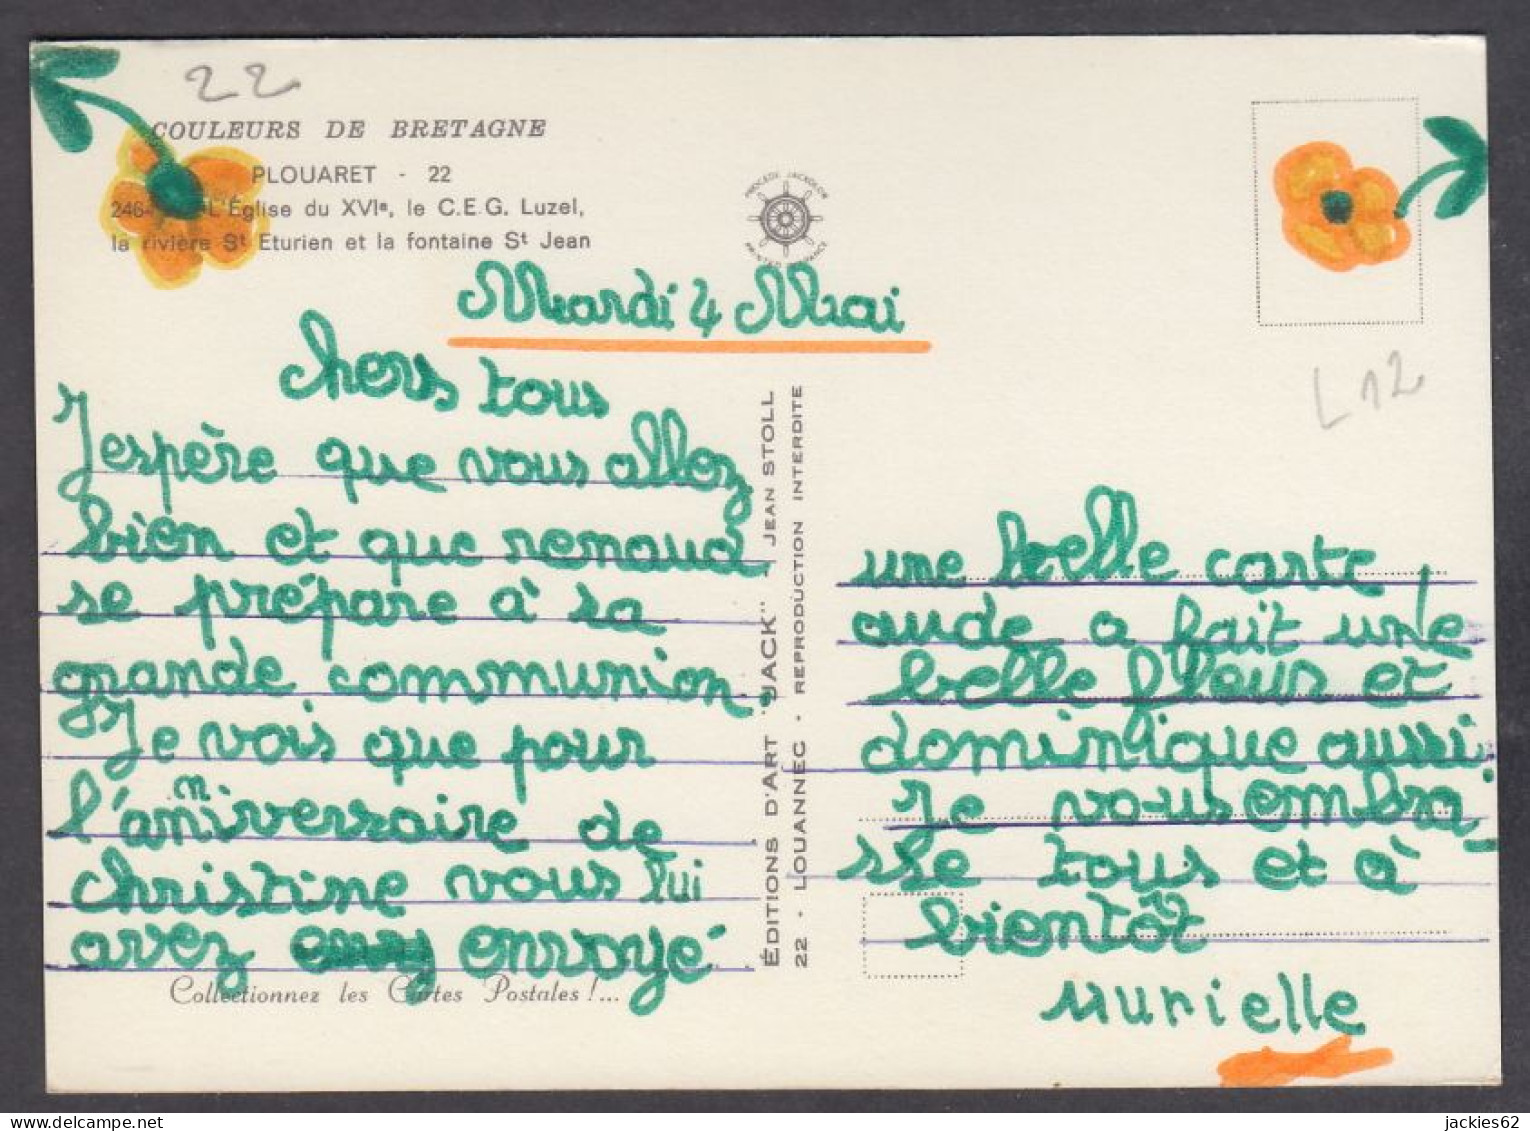 22
COULEURS DE BRETAGNE
PLOUARET - 22
L'Église du XVIe, le C.E.G. Luzel,
la rivière St Eturien et la fontaine St Jean
PROCÉDÉ JACKOLOR
PRINTED FRANCE
Mardi 4 Mai
chers tous
J'espère que vous allez
bien et que renaud
se prépare à sa
grande communion.
Je vois que pour
l'anniversaire de
christine vous lui
avez envoyé
Collectionnez les Cartes Postales !...
ÉDITIONS D'ART "JACK" - JEAN STOLL
22 - LOUANNEC - REPRODUCTION INTERDITE
L12
une belle carte,
aude a fait une
belle fleur et
dominique aussi
Je vous embra-
sse tous et à
bientôt
Murielle
jackies62
delcampe.net